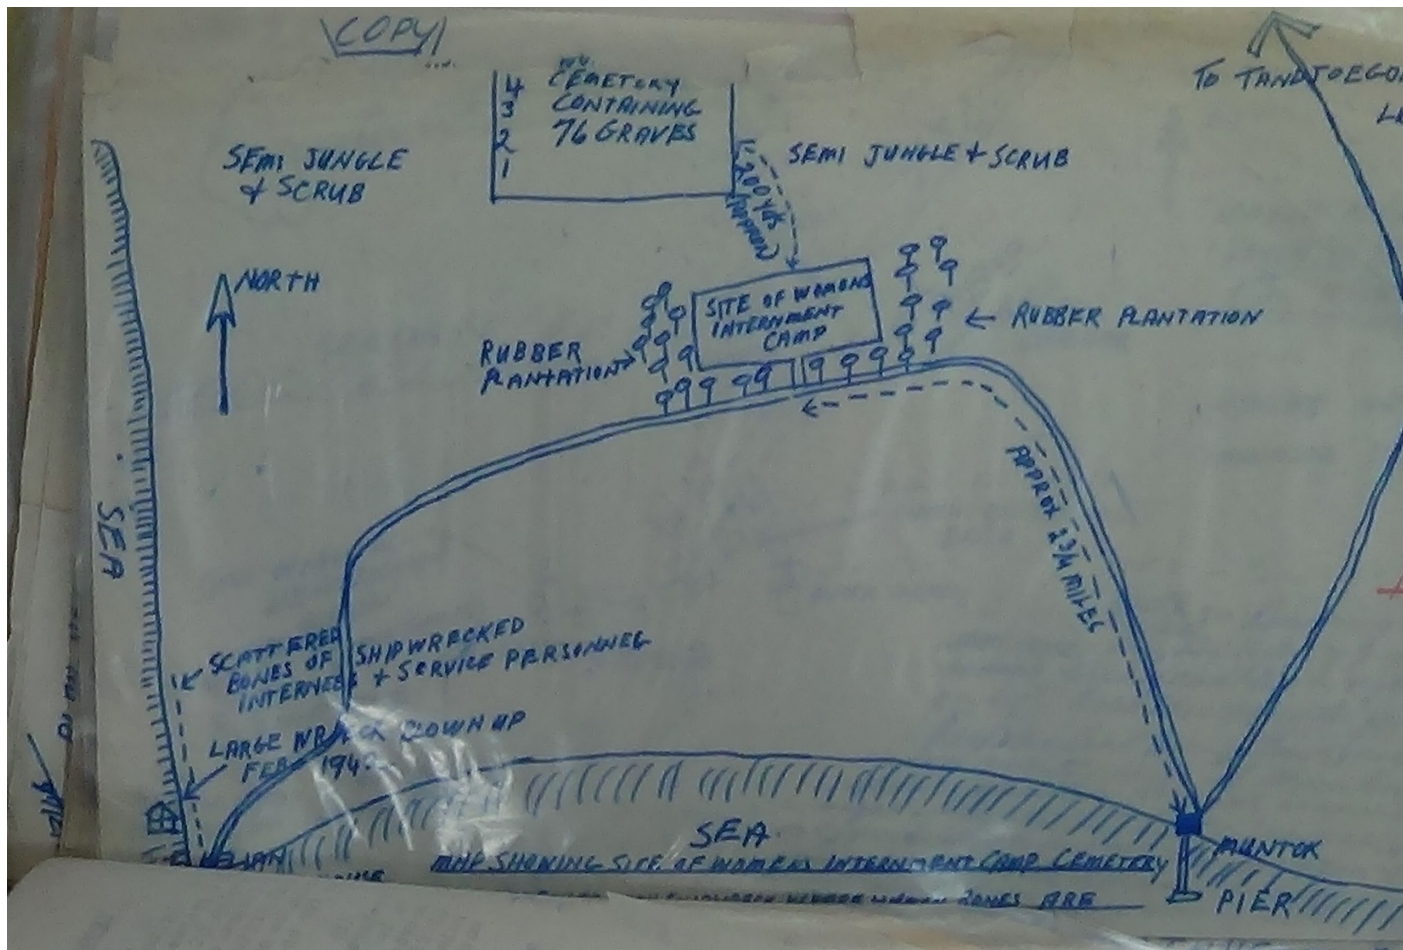 COPY
4
3
2
1
CEMETERY
CONTAINING
76 GRAVES
TO
SEMI JUNGLE
& SCRUB
SEMI JUNGLE & SCRUB
200 YDS
APPROX
NORTH
SITE OF WOMENS
INTERNMENT
CAMP
RUBBER
PLANTATION
RUBBER PLANTATION
APPROX 2 3/4 MILES
SEA
SCATTERED
BONES OF SHIPWRECKED
INTERNEES & SERVICE PERSONNEL
LARGE WRECK BLOWN UP
FEB 194
SEA
MUNTOK
PIER
MAP SHOWING SITE OF WOMENS INTERNMENT CAMP CEMETERY
BONES ARE